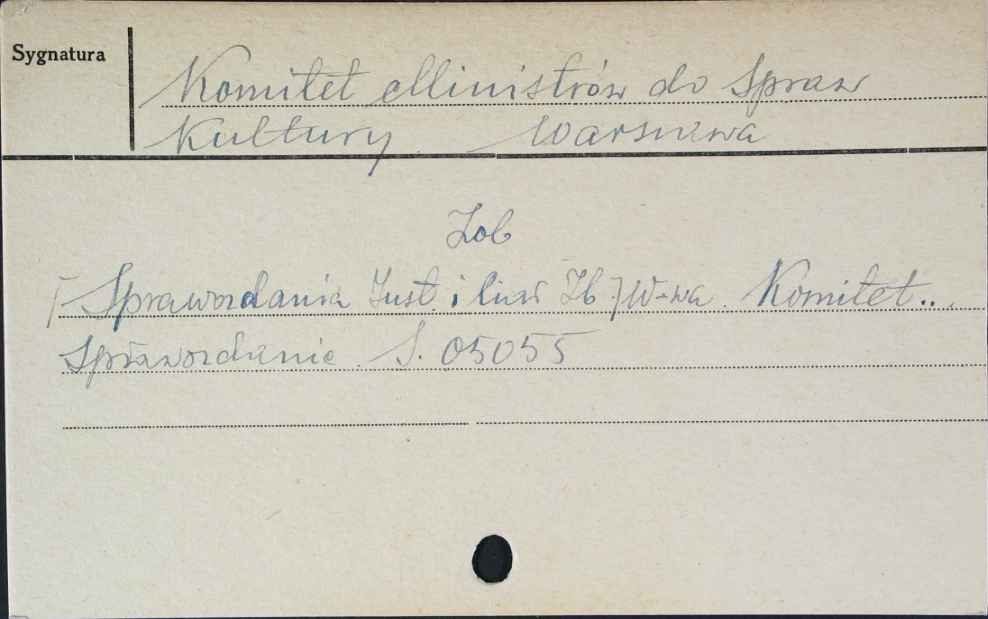 Sygnatura
Komitet Ministrów do Spraw
Kultury Warszawa
Zob
[Sprawozdania Inst. i Zb.] W-wa. Komitet...
Sprawozdanie. S. 05055